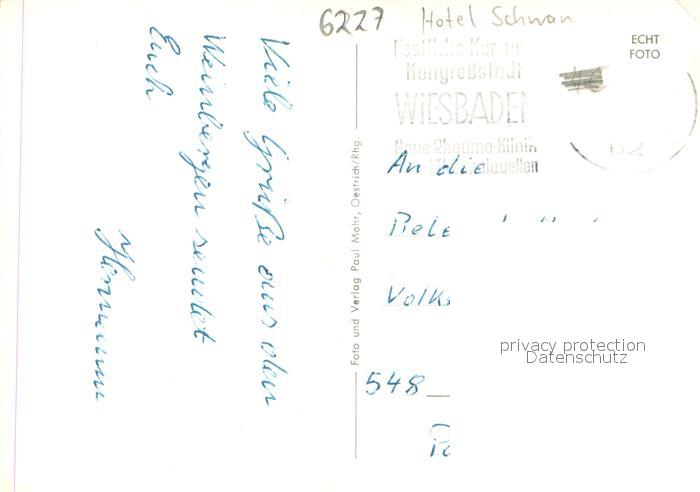 6227 Hotel Schwan
ECHT
FOTO
Festliche Kur-
Kongreßstadt
WIESBADEN
Neue Rheuma-Klinik
62
Viele Grüße aus den
Weinbergen sendet
Euch
Hermann
Foto und Verlag Paul Mohr, Oestrich/Rhg.
An die
Volks
548
privacy protection
Datenschutz